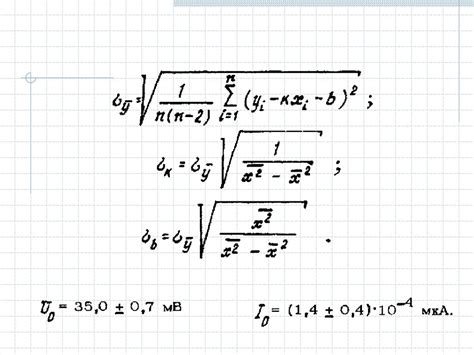 σ_ȳ = √( 1/(n(n-2)) Σ_{i=1}^{n} (y_i - кx_i - b)² ) ;
σ_к = σ_ȳ √( 1/(x̅²̅ - x̅²) ) ;
σ_b = σ_ȳ √( x̅²̅/(x̅²̅ - x̅²) ) .
U̅₀ = 35,0 ± 0,7 мВ I₀ = (1,4 ± 0,4)·10⁻⁴ мкА.